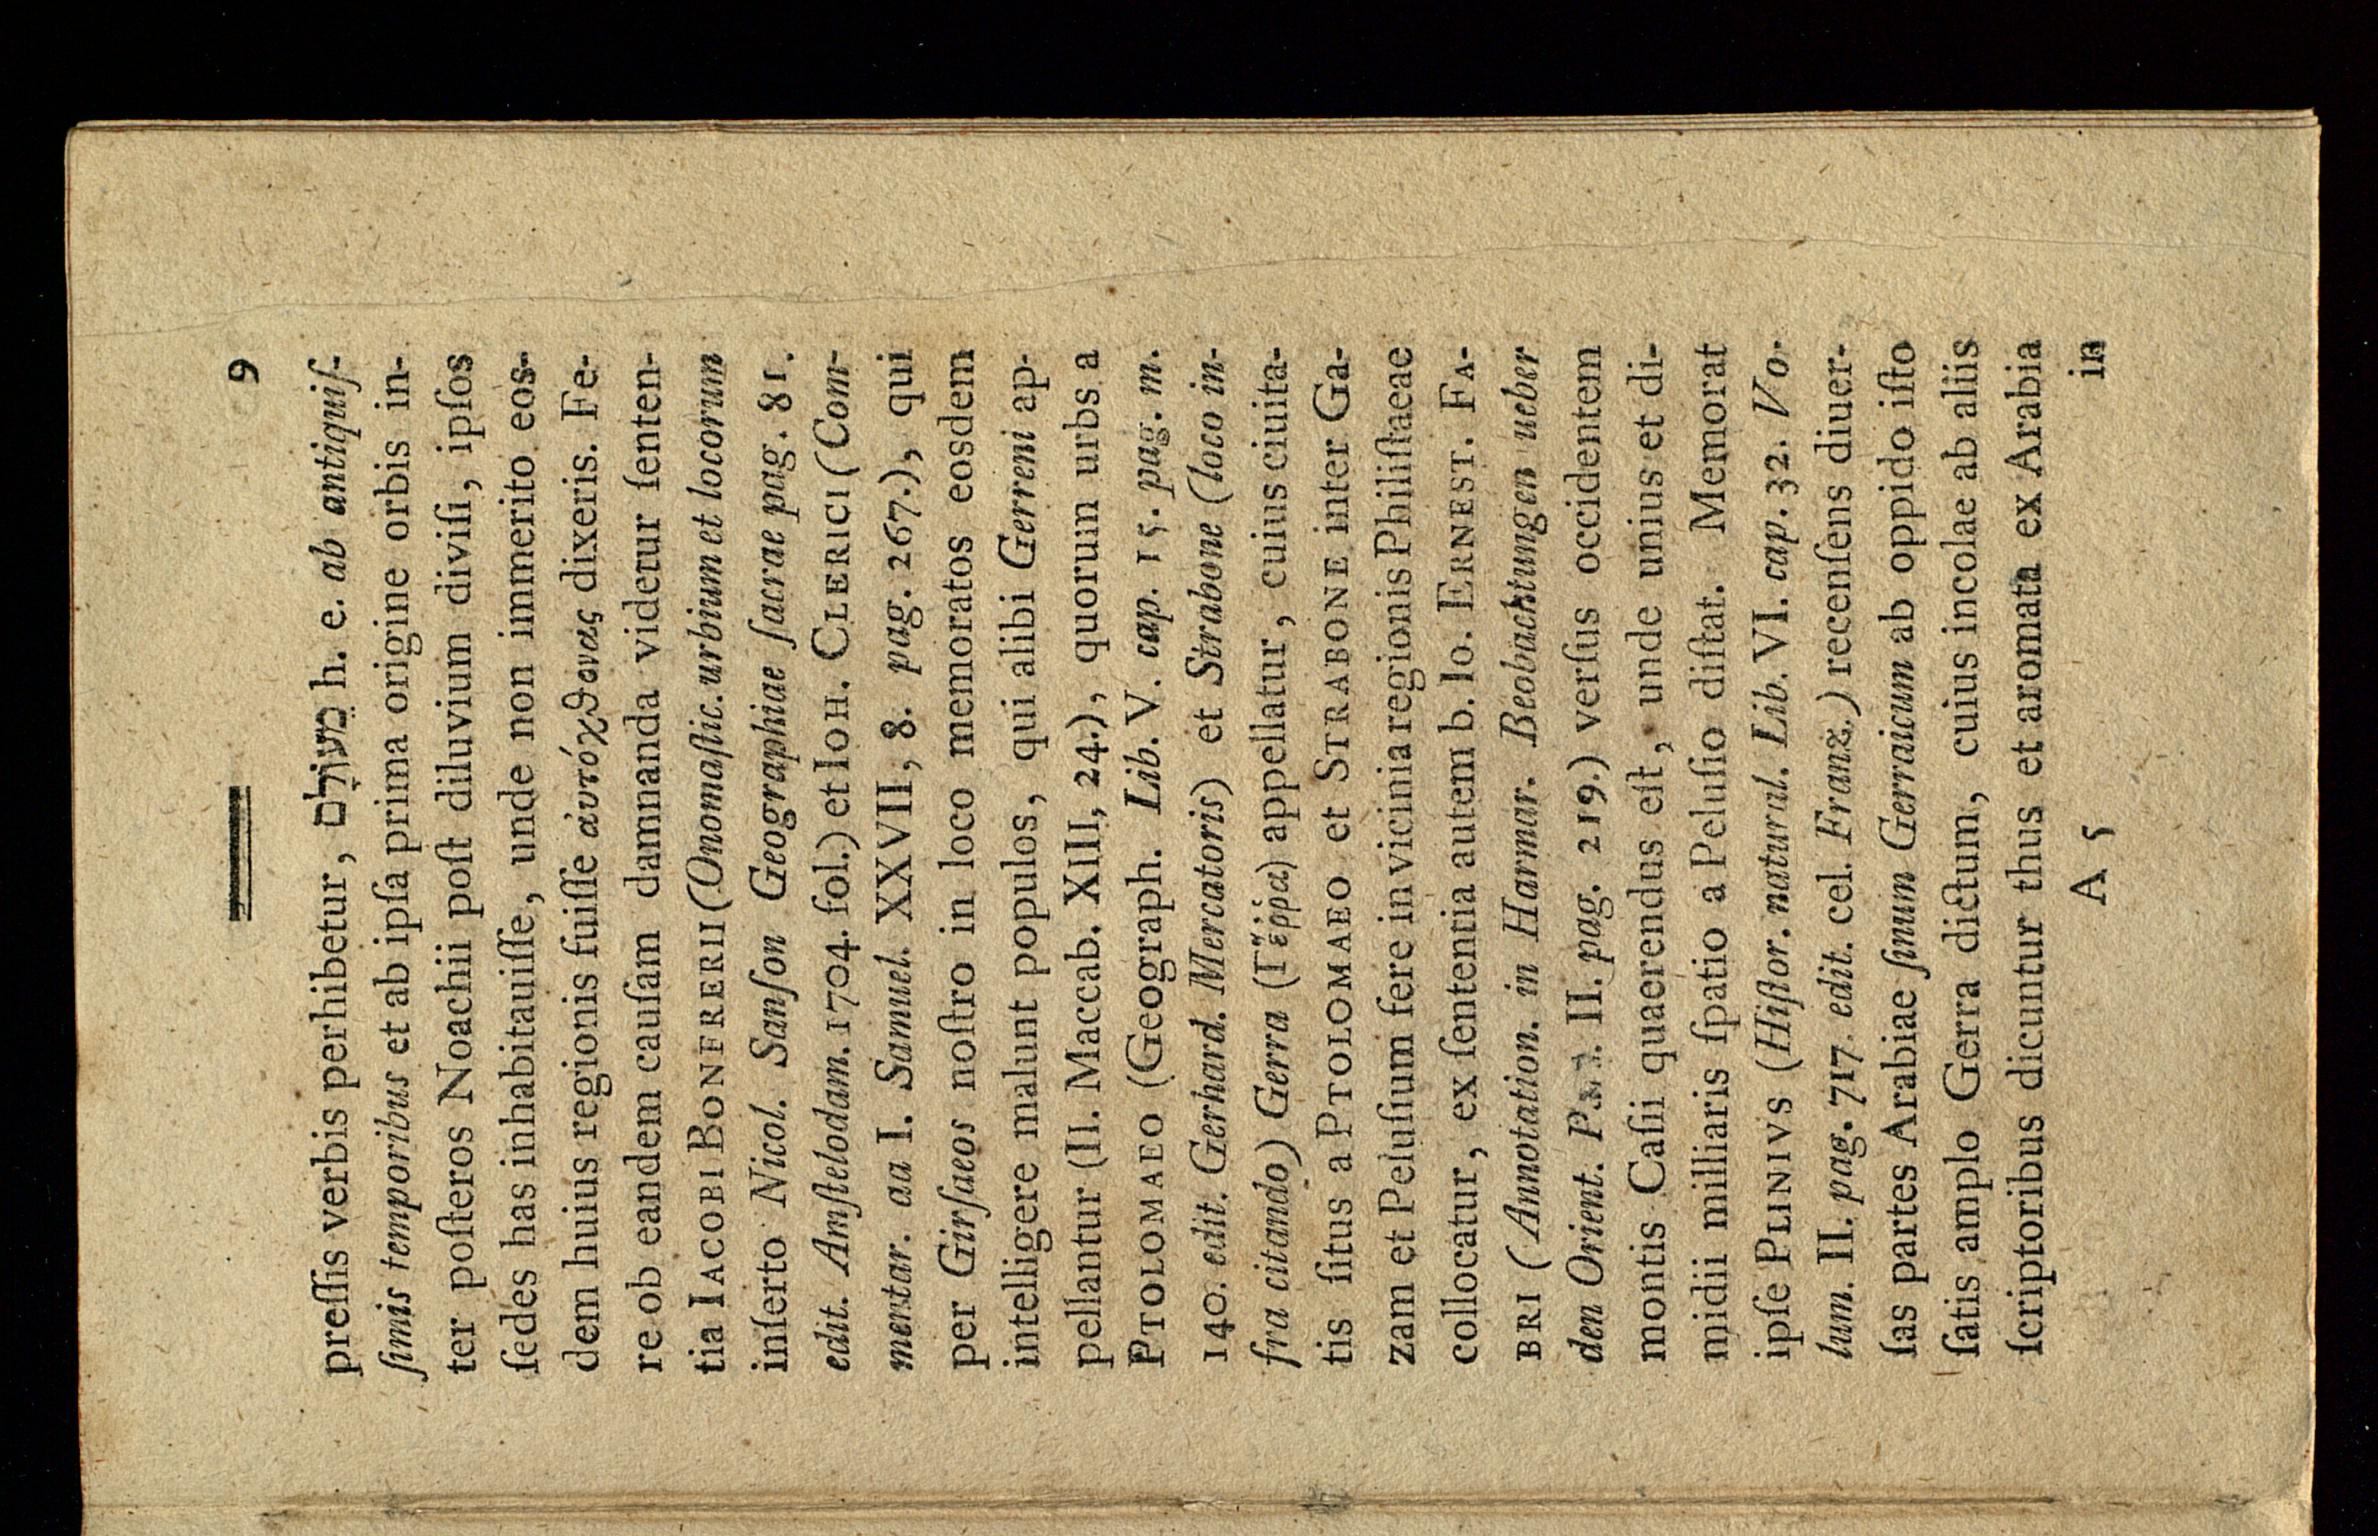 9
preſſis verbis perhibetur, מֵעוֹלָם h. e. ab antiquiſ-
ſimis temporibus et ab ipſa prima origine orbis in-
ter poſteros Noachii poſt diluvium diviſi, ipſos
ſedes has inhabitauiſſe, unde non immerito eos-
dem huius regionis fuiſſe ἀυτόχϑονας dixeris. Fe-
re ob eandem cauſam damnanda videtur ſenten-
tia IACOBI BONFRERII (Onomaſtic. urbium et locorum
inſerto Nicol. Sanſon Geographiae ſacrae pag. 81.
edit. Amſtelodam. 1704. fol.) et IOH. CLERICI (Com-
mentar. ad I. Samuel. XXVII, 8. pag. 267.), qui
per Girſaeos noſtro in loco memoratos eosdem
intelligere malunt populos, qui alibi Gerreni ap-
pellantur (II. Maccab. XIII, 24.), quorum urbs a
PTOLOMAEO (Geograph. Lib. V. cap. 15. pag. m.
140. edit. Gerhard. Mercatoris) et Strabone (loco in-
fra citando) Gerra (Γἕῤῥα) appellatur, cuius ciuita-
tis ſitus a PTOLOMAEO et STRABONE inter Ga-
zam et Peluſium fere in vicinia regionis Philiſtaeae
collocatur, ex ſententia autem b. IO. ERNEST. FA-
BRI (Annotation. in Harmar. Beobachtungen ueber
den Orient. II. pag. 219.) verſus occidentem
montis Caſii quaerendus eſt, unde unius et di-
midii milliaris ſpatio a Peluſio diſtat. Memorat
ipſe PLINIVS (Hiſtor. natural. Lib. VI. cap. 32. Vo-
lum. II. pag. 717. edit. cel. Franz.) recenſens diuer-
ſas partes Arabiae ſinum Gerraicum ab oppido iſto
ſatis amplo Gerra dictum, cuius incolae ab aliis
ſcriptoribus dicuntur thus et aromata ex Arabia
A 5 in